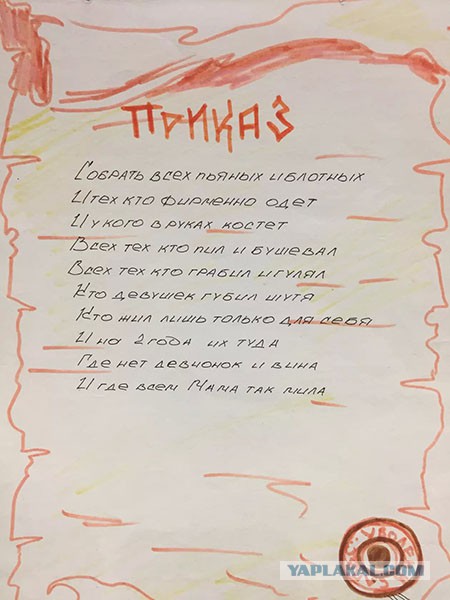 ПРИКАЗ
Собрать всех пьяных и блотных
И тех кто фирменно одет
И у кого в руках костет
Всех тех кто пил и бушевал
Всех тех кто грабил и гулял
Кто девушек губил шутя
Кто жил лишь только для себя
И на 2 года их туда
Где нет девчонок и вина
И где всем Мама так мила
YAPLAKAL.COM